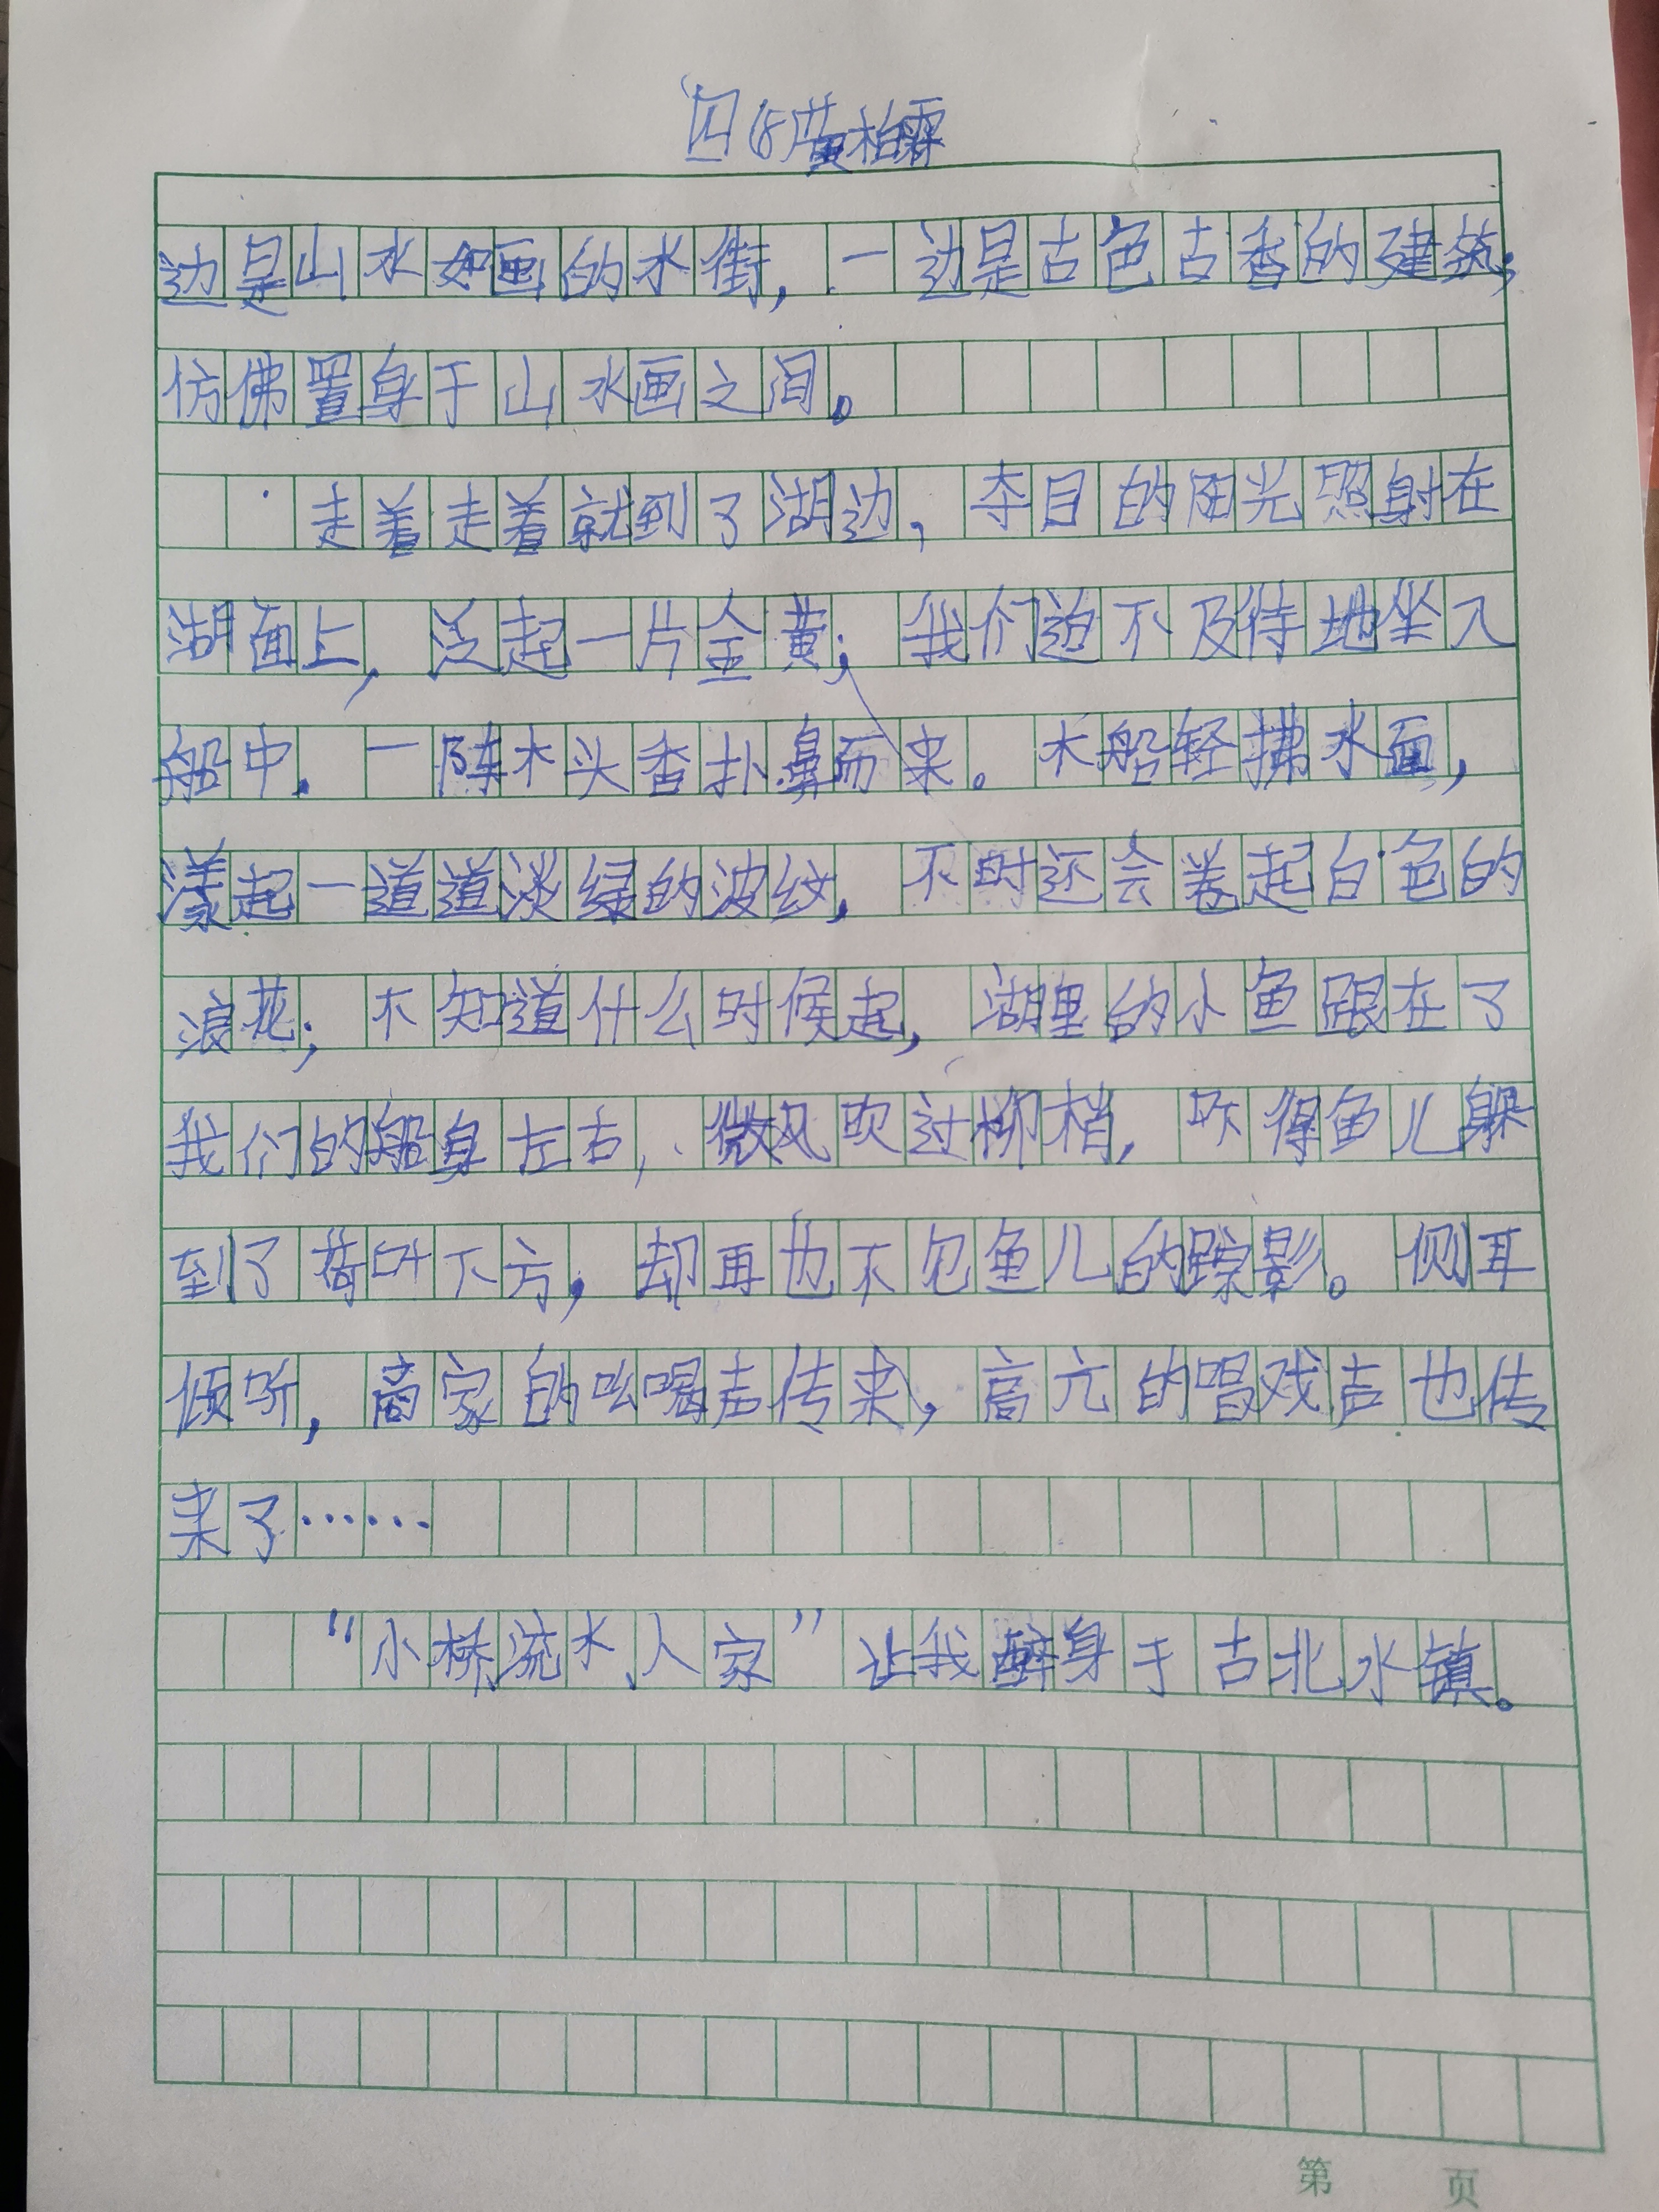 四(6)黄柏霖
边是山水如画的水街，一边是古色古香的建筑；
仿佛置身于山水画之间。
走着走着就到了湖边，夺目的阳光照射在
湖面上，泛起一片金黄；我们迫不及待地坐入
船中，一阵木头香扑鼻而来。木船轻拂水面，
漾起一道道淡绿的波纹，不时还会卷起白色的
浪花；不知道什么时候起，湖里的小鱼跟在了
我们的船身左右，微风吹过柳梢，吹得鱼儿躲
到了荷叶下方，却再也不见鱼儿的踪影。侧耳
倾听，商家的吆喝声传来，高亢的唱戏声也传
来了……
“小桥流水人家”让我醉身于古北水镇。
第 页